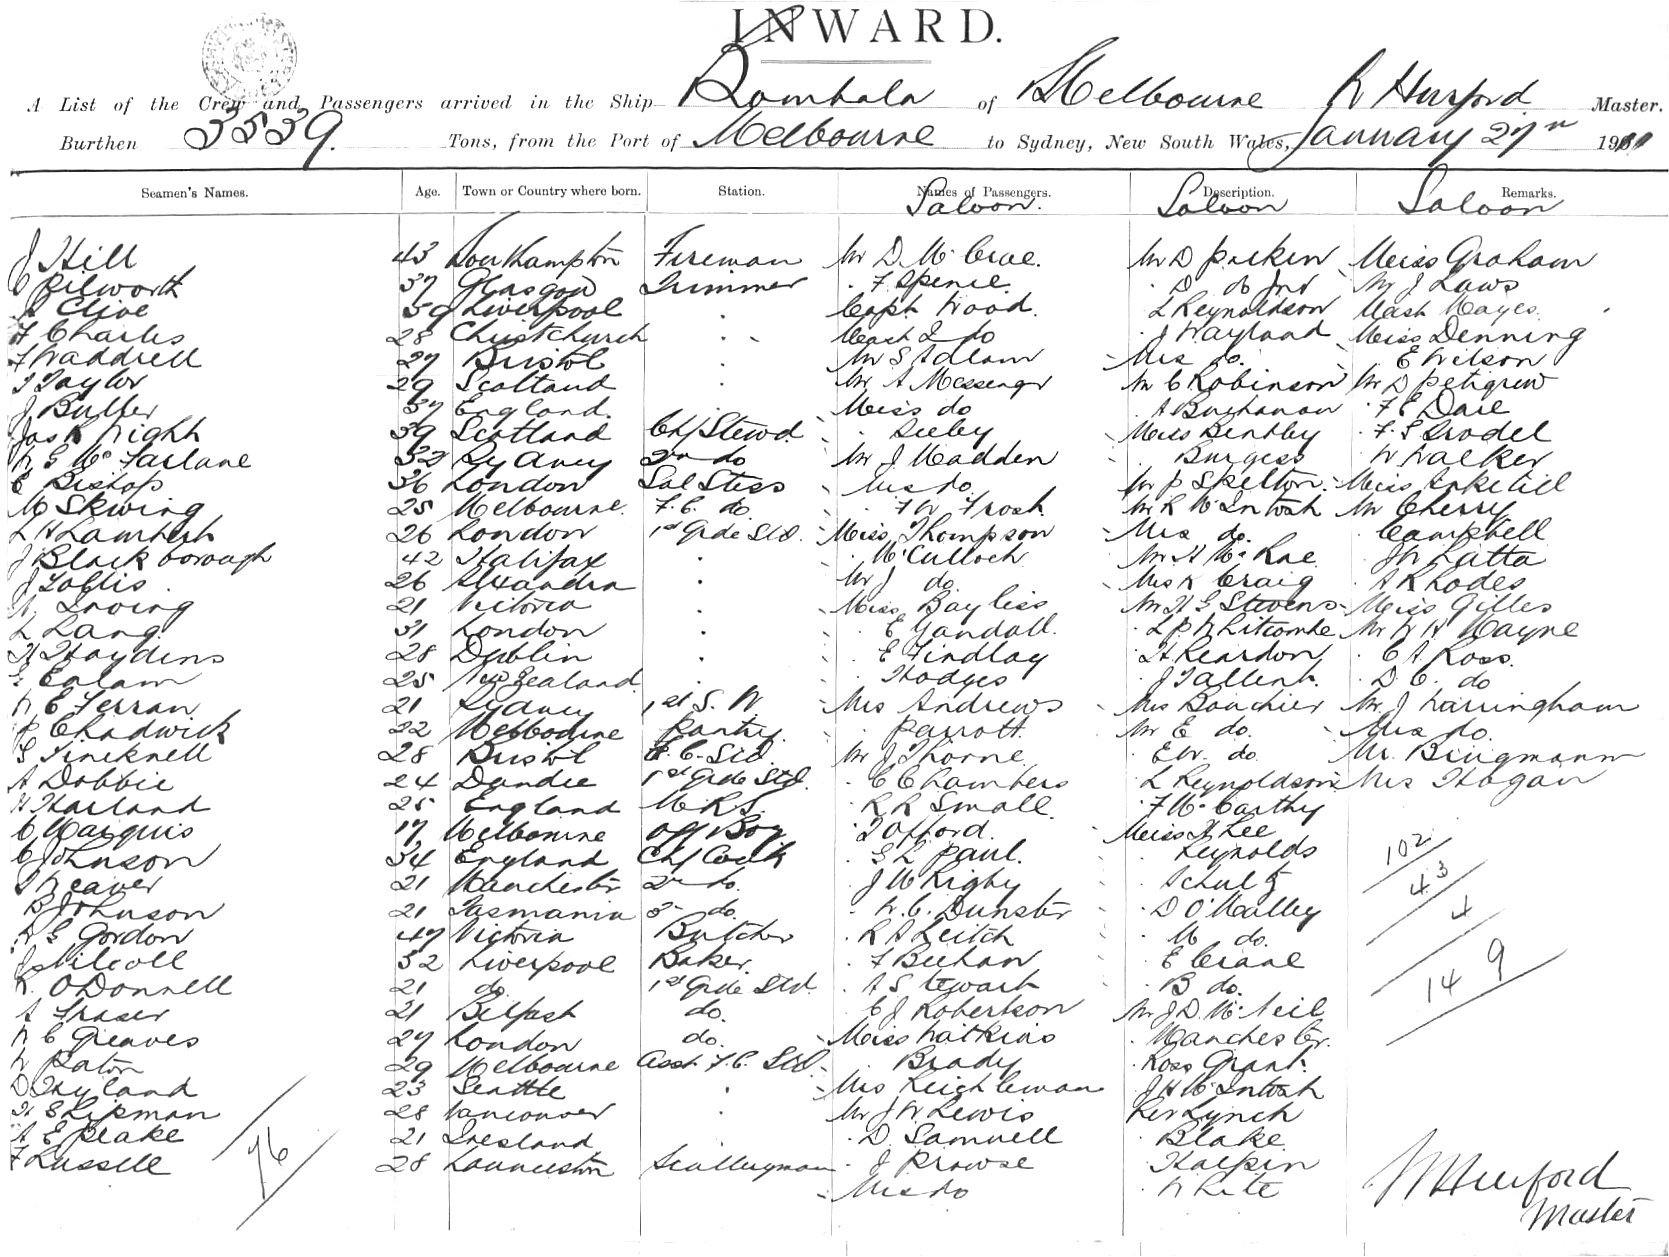 INWARD.
A List of the Crew and Passengers arrived in the Ship Bombala of Melbourne R Hurford Master.
Burthen 3539. Tons, from the Port of Melbourne to Sydney, New South Wales, January 27th 1911
Seamen's Names. Age. Town or Country where born. Station. Names of Passengers. Description. Remarks.
Saloon. Saloon Saloon
J Hill 43 Fireman Mr D Mc Crae. Mr D Parkin Miss Graham
C Pilworth 37 Glasgow Trimmer F Spence. D do Jnr Mr J Laws
Clive 39 Liverpool . Capt Wood. L Reynoldson Mast Hayes.
F Charles 28 Christchurch . . Mast L do J Wayland Miss Denning
F Waddrell 27 Bristol . Mr S Adlam Mrs do. E Wilson
T Taylor 29 Scotland . Mr A Messenger Mr C Robinson Mr D Petigrew
J Butler 37 England. . Miss do A Buchanan F E Dare
Jas R Wight 39 Scotland Ch Stewd. Seeby Miss Bentley F S Brodel
W G Mc Farlane 32 Sydney 2nd do Mr J Madden Burgess W Walker
E Bishop 36 London Sal Stess Mrs do. Mr P Skelton. Miss Anketill
M Skewing 25 Melbourne. F. C. do. F W Frost. Mr R Mc Intosh Mr Cherry
L H Lambert 26 London 1st Grde Std. Miss Thompson Mrs do. Campbell
J Blackborough 42 Halifax . McCulloch Mr A McRae J W Latta
J Loftis 26 Alexandra . Mr J do. Mrs K Craig A Rhodes
W Irving 21 Victoria . Miss Bayliss Mr H G Stevens Miss Gilles
L Lang. 31 London . E Yandall. L P Whitcombe Mr W H Mayne
H Haydens 28 Dublin . E Findlay H Reardon C A Ross.
Ealam 25 New Zealand. . Hodges J Tallent. D. C. do
W E Ferran 21 Sydney 1st S. W Mrs Andrews Mrs Bouchier Mr J Warringham
P Chadwick 22 Melbourne Pantry. Parrott. Mr E do. Mrs do.
S Tincknell 28 Bristol F. C. Std. Mr J Thorne E W. do. Mr. Brugmann
A Dobbie 24 Dundee 1st Grde Std. C Chambers L Reynoldson Mrs Hogan
H Harland 25 England M R S. R R Small. F Mc Carthy
C Marquis 17 Melbourne Off Boy T Offord. Miss H Lee
C Johnson 34 England Ch Cook S L Paul. Reynolds 102
T Weaver 21 Manchester 2nd do. J W Rigby Schultz 43
B Johnson 21 Tasmania 3rd do. W. C. Dunster D O'Malley 4
R G Gordon 47 Victoria Butcher R A Leitch M do.
J Nicoll 32 Liverpool Baker. F Beehan E Crane 149
R. O Donnell 21 do. 1st Grde Std. A Stewart B do.
A Fraser 21 Belfast do. C J Robertson Mr J D. McNeil
W C Greaves 27 London do. Miss Watkins Manchester.
W Paton 29 Melbourne Asst F. C. Std. Brady Ross Grant.
D Hyland 23 Seattle . Mrs Reichleman J H Mc Intosh
H Shipman 28 Vancouver . Mr J W Lewis Rev Lynch
A E Blake 21 Ireland . D. Samuell Blake
F Russell 28 Launceston Sculleryman J Prowse Halpin
76 Mrs do White
R Hurford
Master